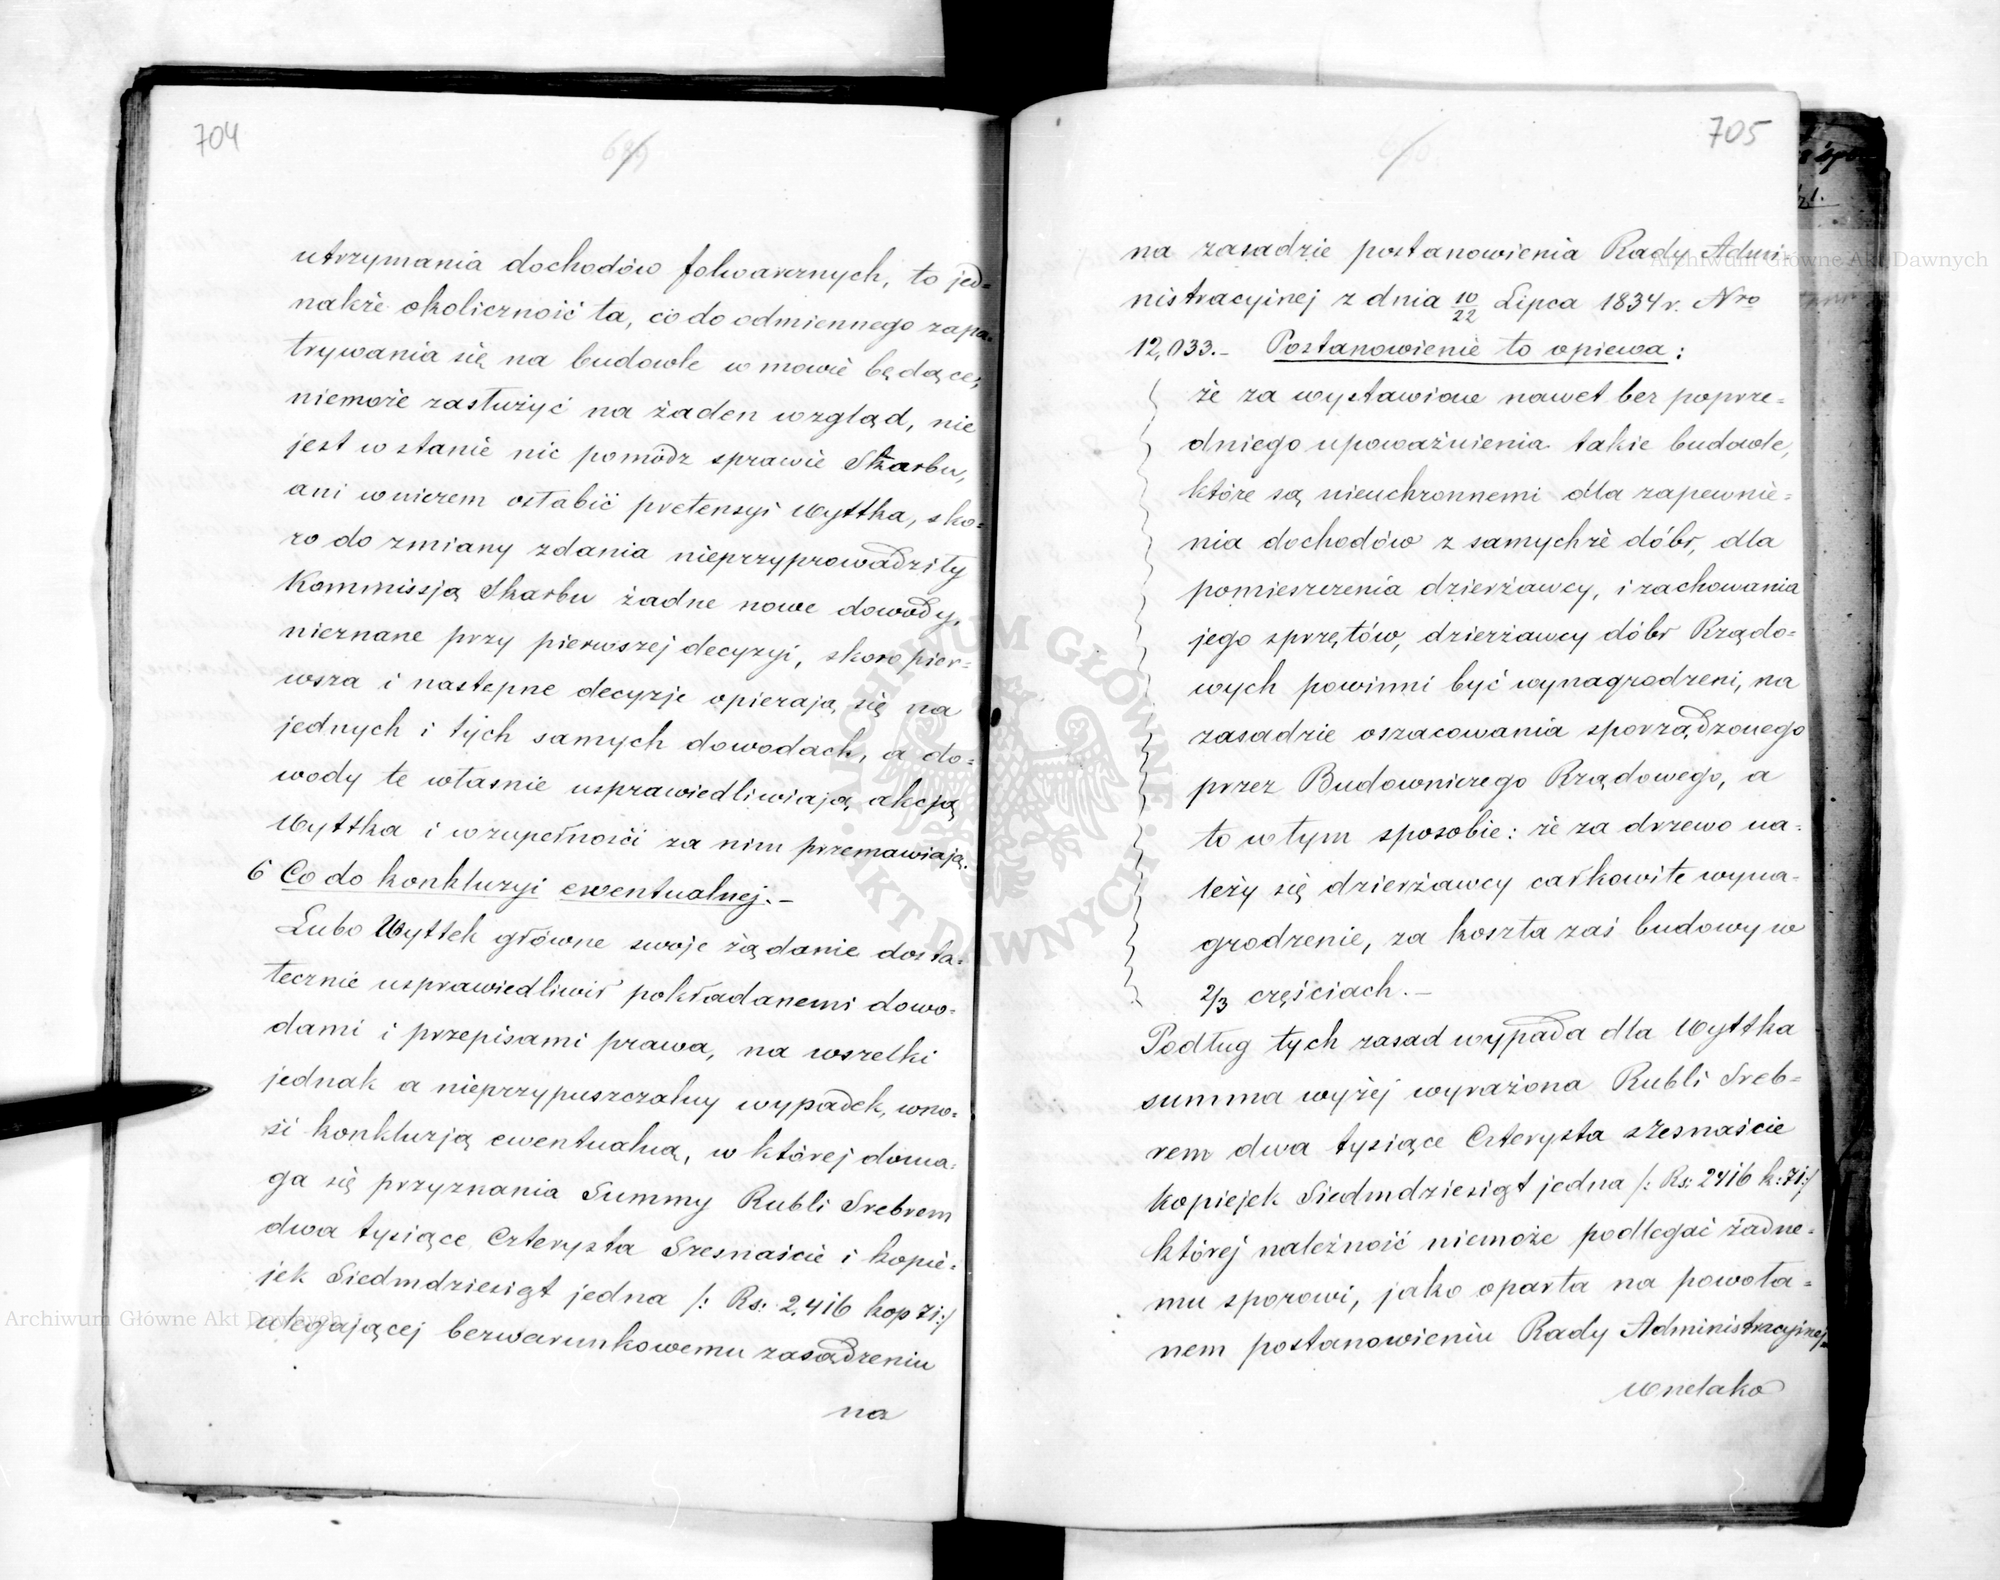 704
utrzymania dochodów folwarcznych, to jed=
nakże okoliczność ta, co do odmiennego zapa=
trywania się na budowle w mowie będące,
niemoże zasłużyć na żaden wzgląd, nie
jest w stanie nic pomódz sprawie Skarbu,
ani wniczem osłabić pretensyi Wyttka, sko=
ro do zmiany zdania nieprzyprowadziły
Kommissją Skarbu żadne nowe dowody,
nieznane przy pierwszej decyzyi, skoro pier=
wsza i nastepne decyzje opierają się na
jednych i tych samych dowodach, a do=
wody te własnie usprawiedliwiają akcją
Wyttka i wzupełności za nim przemawiają.
6 Co do konkluzyi ewentualnej.–
Lubo Wyttek główne swoje żądanie dosta=
tecznie usprawiedliwił pokładanemi dowo=
dami i przepisami prawa, na wszelki
jednak a nieprzypuszczalny wypadek, wno=
si konkluzją ewentualną, w której doma=
ga się przyznania Summy Rubli Srebrem
dwa tysiące Czterysta Szesnaście i kopie=
jek Siedmdziesiąt jedna /: Rs: 2,416 kop 71:/
ulegającej bezwarunkowemu zasądzeniu
na
705
na zasadzie postanowienia Rady Admi=
nistracyjnej z dnia 10/22 Lipca 1834 r. Nro
12,033.– Postanowienie to opiewa:
że za wystawione nawet bez poprze=
dniego upoważnienia takie budowle,
które są nieuchronnemi dla zapewnie=
nia dochodów z samychże dóbr, dla
pomieszczenia dzierżawcy, i zachowania
jego sprzętów, dzierżawcy dóbr Rządo=
wych powinni być wynagrodzeni, na
zasadzie oszacowania sporządzonego
przez Budowniczego Rządowego, a
to w tym sposobie: że za drzewo na=
leży się dzierżawcy całkowite wyna=
grodzenie, za koszta zaś budowy w
2/3 częściach.–
Podług tych zasad wypada dla Wyttka
summa wyżej wyrażona Rubli Sreb=
rem dwa tysiące Czterysta szesnaście
kopiejek Siedmdziesiąt jedna /: Rs: 2416 k: 71:/
której należność niemoże podlegać żadne=
mu sporowi, jako oparta na powoła=
nem postanowieniu Rady Administracyjnej
Wnelako
Archiwum Główne Akt Dawnych
Archiwum Główne Akt Dawnych
ARCHIWUM GŁÓWNE · AKT DAWNYCH ·